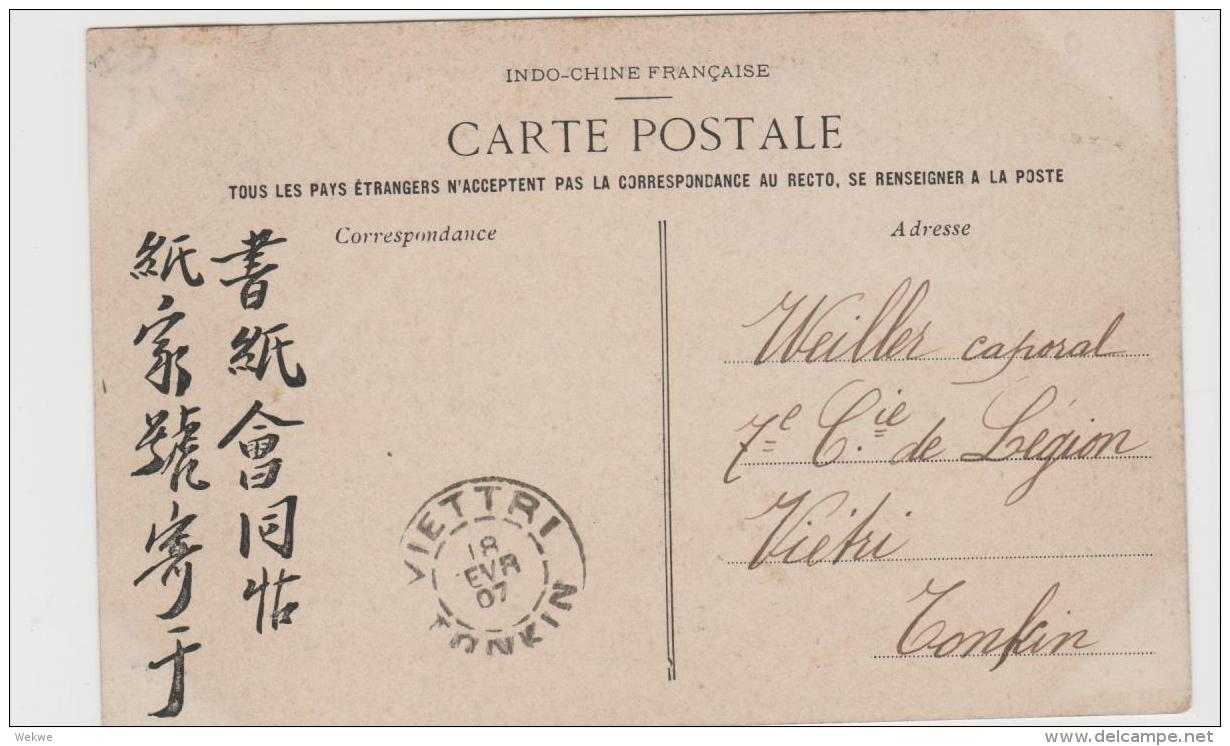 INDO-CHINE FRANÇAISE
CARTE POSTALE
TOUS LES PAYS ÉTRANGERS N'ACCEPTENT PAS LA CORRESPONDANCE AU RECTO, SE RENSEIGNER A LA POSTE
Correspondance
Adresse
書紙會同帖
紙家號寄于
Weiller caporal
7e Cie de Légion
Viétri
Tonkin
VIETTRI
18
EVR
07
TONKIN
Wekwe
delcampe.net